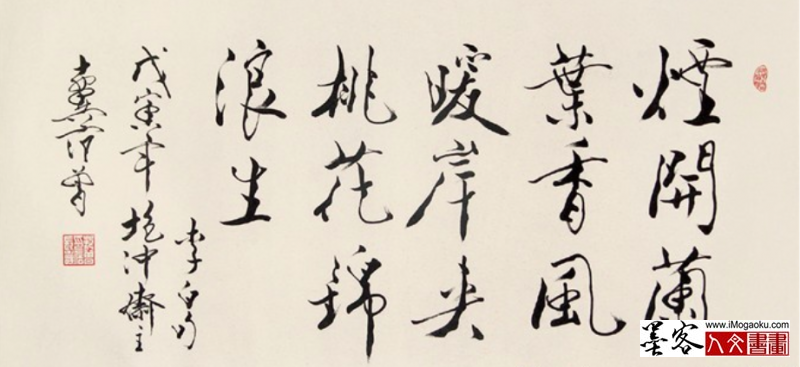 煙開蘭
葉香風
暖岸夾
桃花錦
浪生
李白句
戊寅年 抱冲齋主
十翼范曾
墨客
www.iMogaoku.com
人文書畫